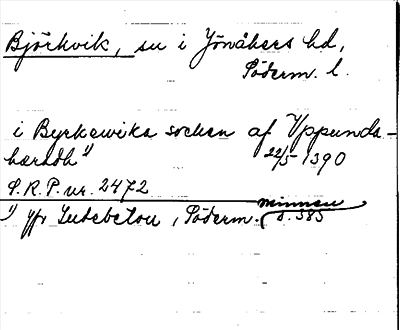 Björkvik, sn i Jönåkers hd,
Söderm. l.
i Byrkawika socken af Vppunda-
hæradh 1) 22/5 1390
S.R.P. nr. 2472
1) jfr Lutebetou, Söderm. minnen
s. 385